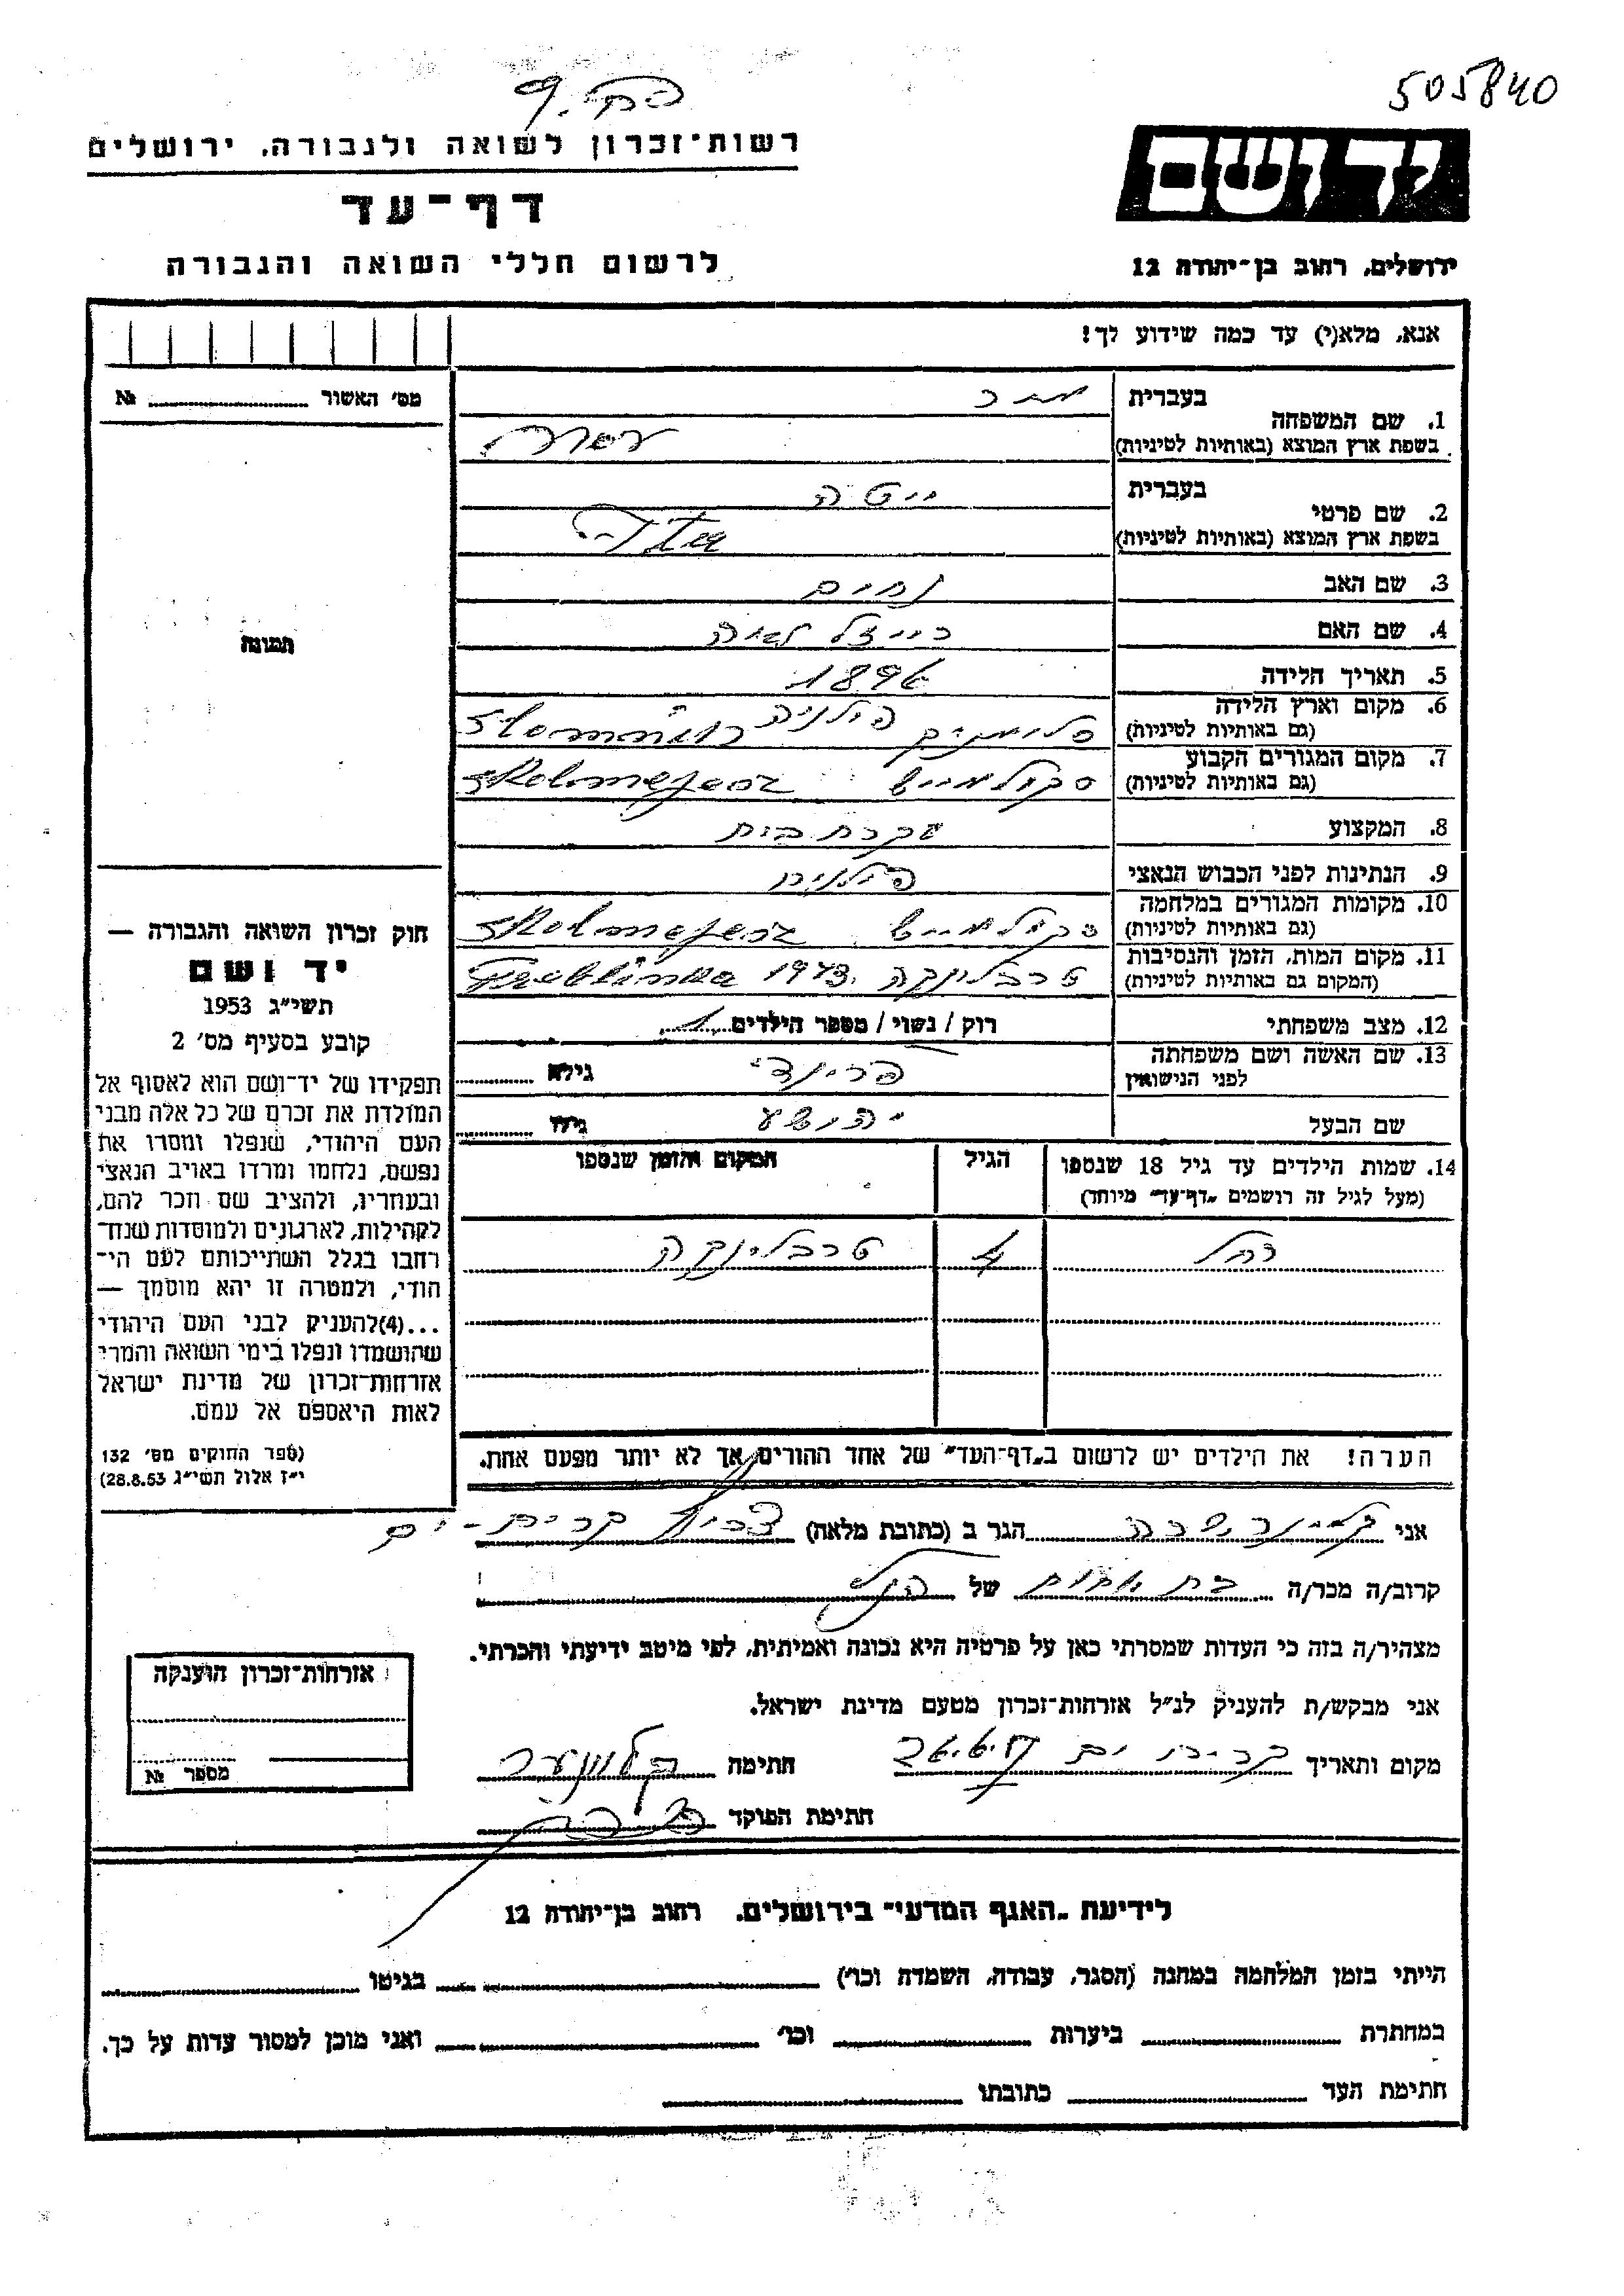 505840
רשות־זכרון לשואה ולגבורה, ירושלים
דף־עד
לרשום חללי השואה והגבורה
ידושם
ירושלים, רחוב בן־יהודה 12
אנא, מלא(י) עד כמה שידוע לך!
מס׳ האשור № 
תמונה
1. שם המשפחה
בעברית
בשפת ארץ המוצא (באותיות לטיניות)
2. שם פרטי
בעברית ייטה
בשפת ארץ המוצא (באותיות לטיניות) Ita
3. שם האב נחום
4. שם האם רייזל לאה
5. תאריך הלידה 1896
6. מקום וארץ הלידה פולניה
(גם באותיות לטיניות)
7. מקום המגורים הקבוע
(גם באותיות לטיניות)
8. המקצוע עקרת בית
9. הנתינות לפני הכבוש הנאצי פולניה
10. מקומות המגורים במלחמה
(גם באותיות לטיניות)
11. מקום המות, הזמן והנסיבות טרבלינקה 1943 Treblinka
(המקום גם באותיות לטיניות)
12. מצב משפחתי רווק / נשוי / מספר הילדים 1
13. שם האשה ושם משפחתה גילה
לפני הנישואין
שם הבעל יהושע גילו
14. שמות הילדים עד גיל 18 שנספו הגיל המקום והזמן שנספו
(מעל לגיל זה רושמים „דף־עד״ מיוחד)
רחל 4 טרבלינקה
הערה! את הילדים יש לרשום ב„דף־העד״ של אחד ההורים, אך לא יותר מפעם אחת.
חוק זכרון השואה והגבורה —
יד ושם
תשי״ג 1953
קובע בסעיף מס׳ 2
תפקידו של יד־ושם הוא לאסוף אל
המולדת את זכרם של כל אלה מבני
העם היהודי, שנפלו ומסרו את
נפשם, נלחמו ומרדו באויב הנאצי
ובעוזריו, ולהציב שם וזכר להם,
לקהילות, לארגונים ולמוסדות שנח־
רבו בגלל השתייכותם לעם הי־
הודי, ולמטרה זו יהא מוסמך —
...(4)להעניק לבני העם היהודי
שהושמדו ונפלו בימי השואה והמרי
אזרחות־זכרון של מדינת ישראל
לאות היאספם אל עמם.
(ספר החוקים מס׳ 132
י״ז אלול תשי״ג 28.8.53)
אני הגר ב (כתובת מלאה) קרית-ים
קרוב/ה מכר/ה בת אחות של הנ״ל
מצהיר/ה בזה כי העדות שמסרתי כאן על פרטיה היא נכונה ואמיתית, לפי מיטב ידיעתי והכרתי.
אני מבקש/ת להעניק לנ״ל אזרחות־זכרון מטעם מדינת ישראל.
מקום ותאריך קרית ים חתימה
חתימת הפוקד
אזרחות־זכרון הוענקה
מספר №
לידיעת „האגף המדעי״ בירושלים, רחוב בן־יהודה 12
הייתי בזמן המלחמה במחנה (הסגר, עבודה, השמדה וכו׳) בגיטו
במחתרת ביערות וכו׳ ואני מוכן למסור עדות על כך.
חתימת העד כתובתו